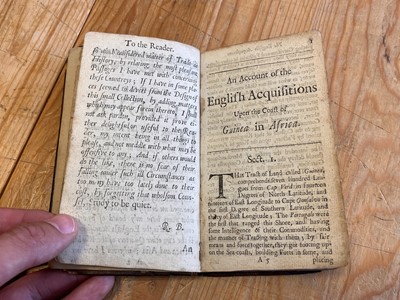 To the Reader.
so good & considered matter of Trade and
History, by relating the most pleasant
Passages I have met with concerning
these Countreys: If I have in some pla-
ces seemed to divert from the Design of
this small Collection, by adding matters
which may appear forein thereto, I shall
not ask pardon, provided it prove ei-
ther delightful or useful to the Rea-
der, my intent being in all things to
please, and not meddle with what may be
offensive to any; And if others would
do the like, there is no fear of their
falling under such ill Circumstances as
too many have lately done to their
forgetting that wholsom Coun-
sel, study to be quiet.
R. B.
An Account of the
English Acquisitions
Upon the Coast of
Guinea in Africa.
Sect. 1.
THis Tract of Land called Guinea,
comprehends seven hundred Lea-
gues from Cap. Verd in fourteen
Degrees of North Latitude, and
of East Longitude to Cape Gonsalvo in
the first Degree of Southern Latitude, and
thirty of East Longitude: The Portugals were
the first that ranged this Shore, and having
some Intelligence of their Commodities, and
the manner of Trading with them, by fair
means and foretogether, they got footing up-
on the Sea-coasts, building Forts in some, and
A 3
placing